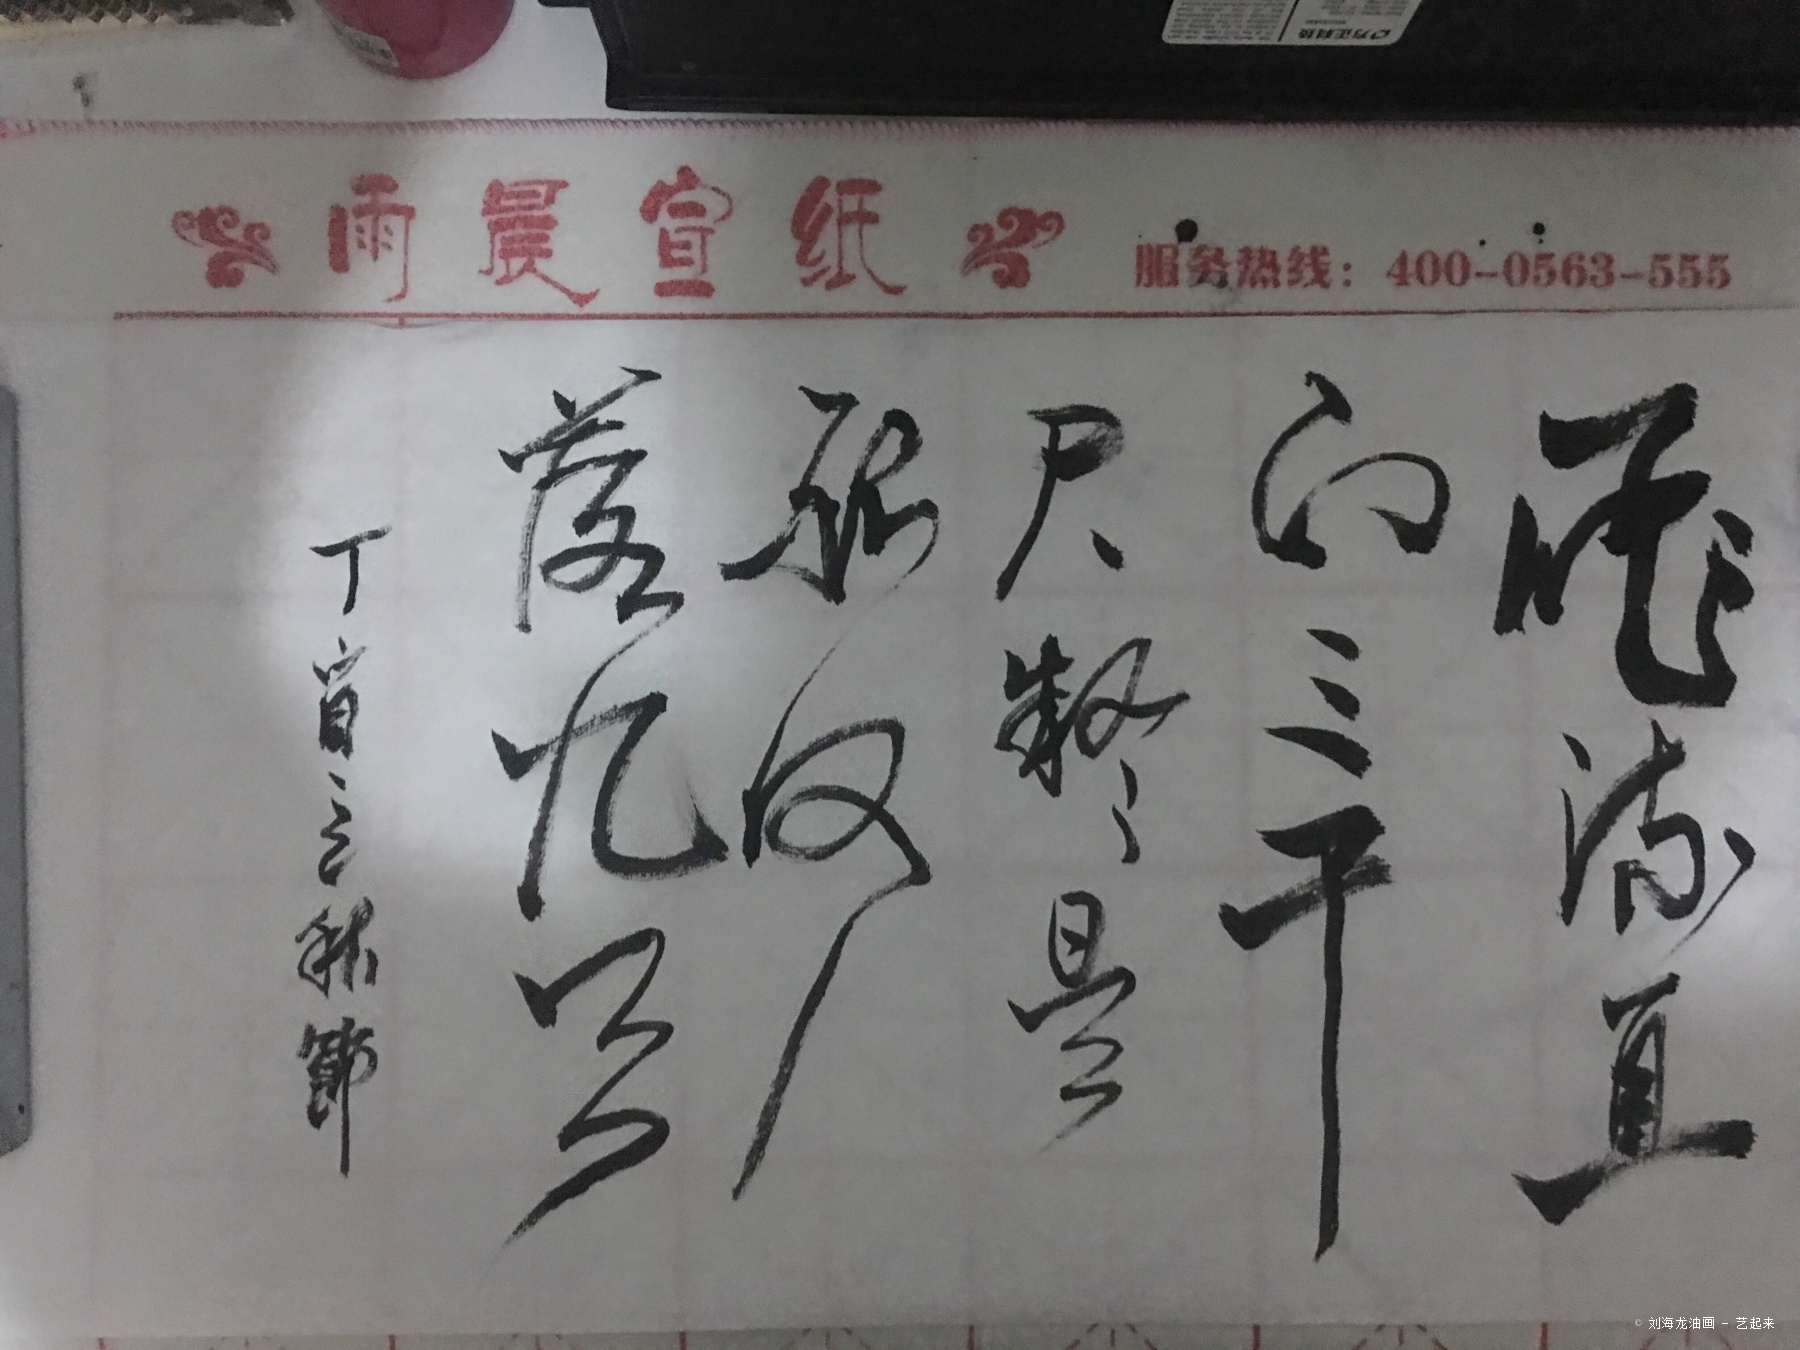 雨晨宣纸
服务热线：400-0563-555
飛流直
下三千
尺疑是
银河
落九天
丁酉立秋節
方正科技
© 刘海龙油画 - 艺起来